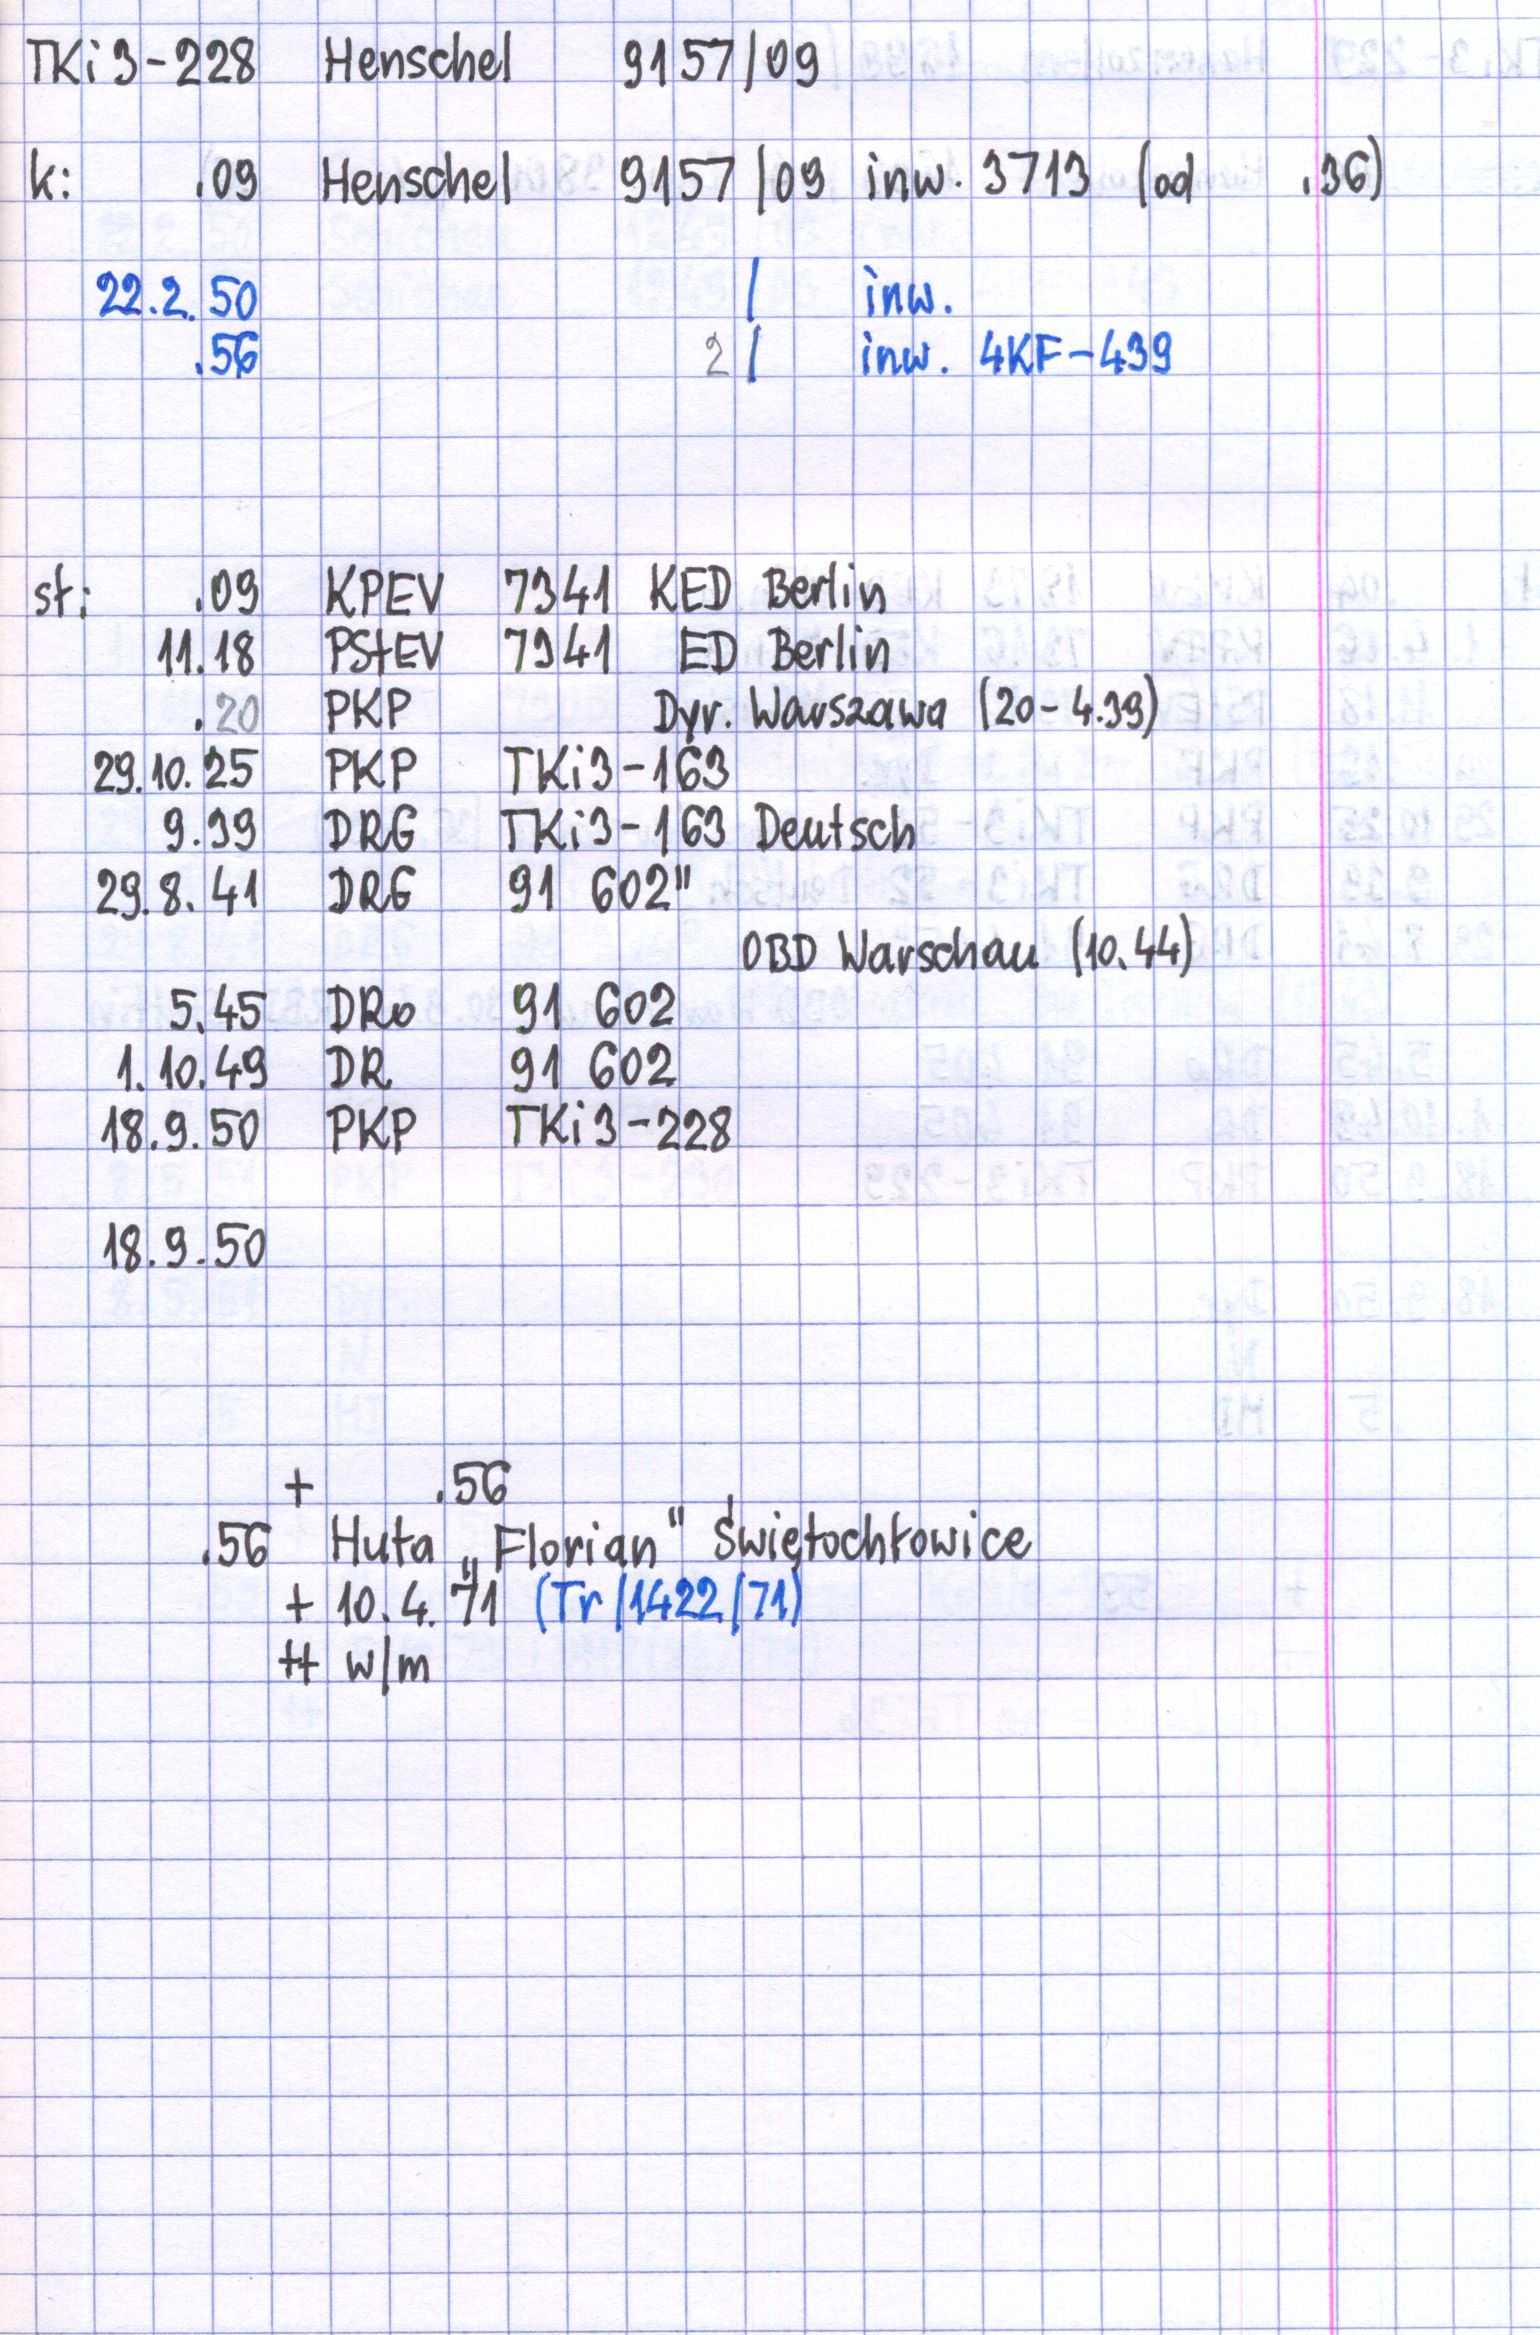 TKi3-228 Henschel 9157/09
k: .09 Henschel 9157/09 inw. 3713 (od .36)
22.2.50 / inw.
.56 2/ inw. 4KF-439
st: .09 KPEV 7341 KED Berlin
11.18 PStEV 7341 ED Berlin
.20 PKP Dyr. Warszawa (20-4.39)
29.10.25 PKP TKi3-163
9.39 DRG TKi3-163 Deutsch
29.8.41 DRG 91 602"
OBD Warschau (10.44)
5.45 DRo 91 602
1.10.49 DR 91 602
18.9.50 PKP TKi3-228
18.9.50
+ .56
.56 Huta „Florian" Świętochłowice
+ 10.4.71 (Tr/1422/71)
++ w/m